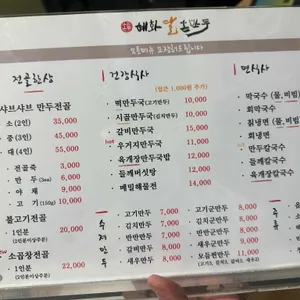 모든메뉴 포장해드립니다
전골한상
샤브샤브 만두전골
소 (2인) 35,000
중 (3인) 45,000
대 (4인) 55,000
전골죽 3,000
만두 (3ea) 6,000
야채 9,000
고기 (150g) 10,000
불고기전골
1인분 20,000
(2인분이상주문)
소곱창전골
1인분 22,000
(2인분이상주문)
건강식사
(곱빼기 1,000원 추가)
떡만두국(고기만두) 10,000
시골만두국(김치만두) 10,000
갈비만두국 14,000
우거지만두국 11,000
육개장만두국밥 12,000
들깨버섯탕 12,000
메밀해물전 14,000
고기만두 7,000
김치만두 7,000
갈비만두 8,000
새우만두 8,000
고기군만두 8,000
김치군만두 8,000
갈비군만두 9,000
새우군만두 9,000
모듬만두 11,000
면식사
막국수 (물, 비빔)
회막국수
칡냉면 (물, 비빔)
회냉면
만두칼국수
들깨칼국수
육개장칼국수